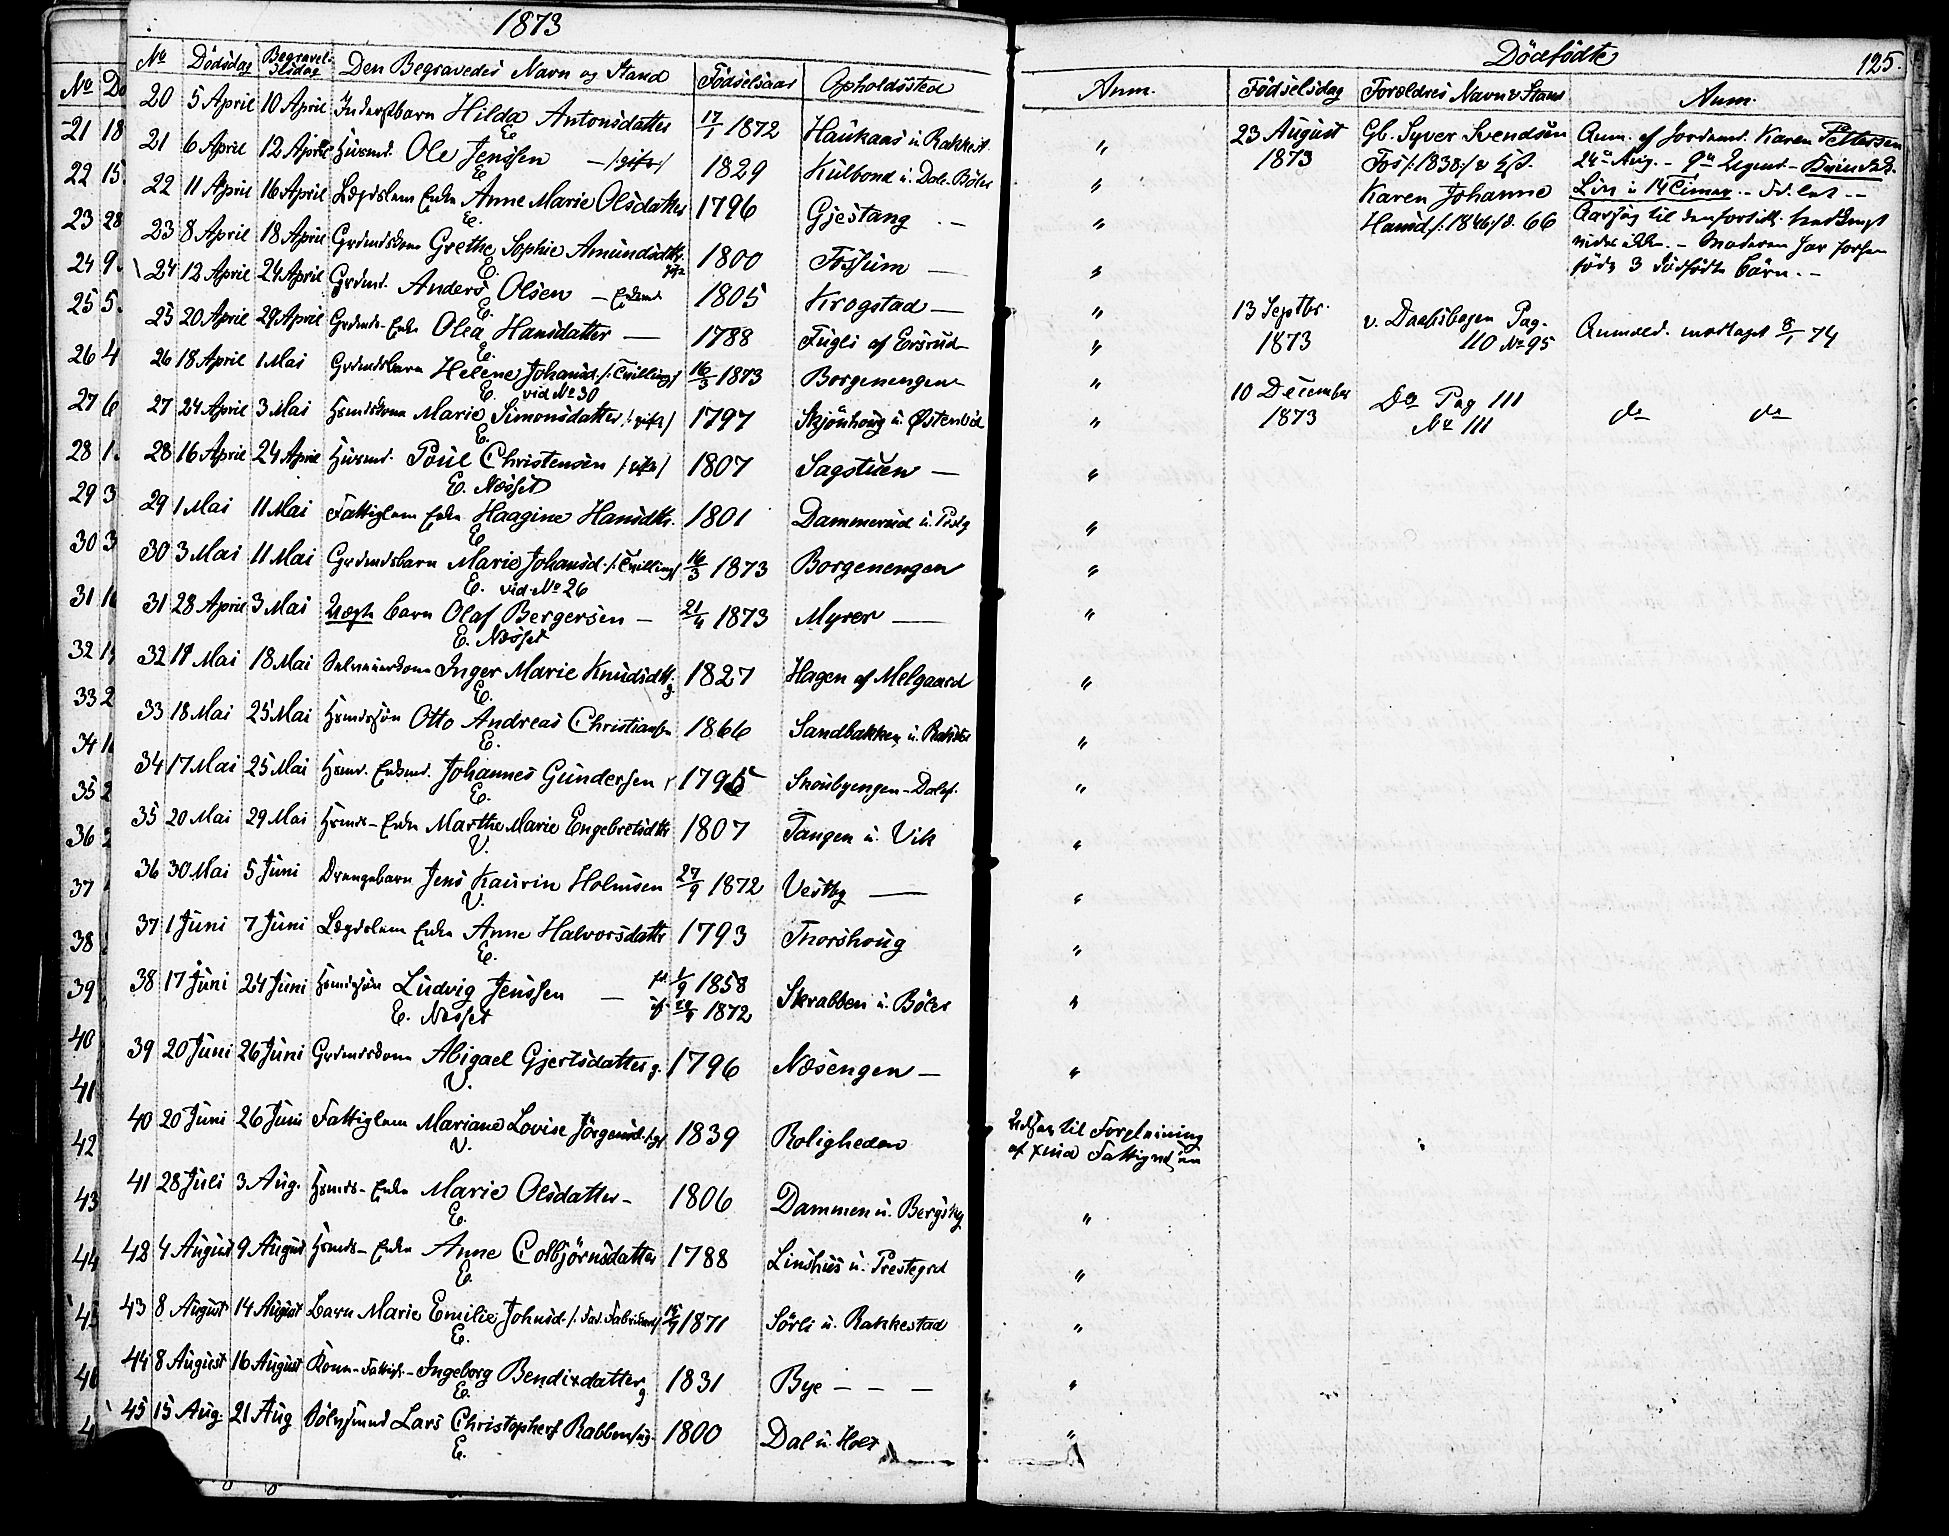 1873
No Dødsdag Begravelsesdag Den Begravedes Navn og Stand Fødselsaar Opholdssted
20 5 April 10 April Inderstbarn Hilda Antonsdatter 17/1 1872 Haukaas u. Rakkest.
E.
21 6 April 12 April Husmd. Ole Jenssen — /gift/ 1829 Kulbond u. Dal. Böler
E.
22 11 April 16 April Lægdslem Enke Anne Marie Olsdatter 1796 Gjestang —
E.
23 8 April 18 April Grdmdskone Grethe Sophie Amundsdtr. 1800 Fossum —
E.
24 12 April 24 April Grdmd. Anders Olsen — Enkemd 1805 Krogstad —
E.
25 20 April 29 April Grdmds-Enke Olea Hansdatter — 1788 Fugli af Ersrud
E.
26 18 April 1 Mai Grdmdsbarn Helene Johansd. /: Tvilling/ 16/3 1873 Borgenengen
E. vid No 30
27 24 April 3 Mai Hsmdskone Marie Simonsdatter /:gift/ 1797 Skjönhoug u. Østenbøl
E.
28 16 April 24 April Husmd. Poul Christensen /gift/ 1807 Sagstuen —
E. Næsset
29 1 Mai 11 Mai Fattiglem Enke Haagine Hansdtr. 1801 Dammerud u. Pstg
E.
30 3 Mai 11 Mai Grdmdsbarn Marie Johansd. /: Tvilling/ 16/3 1873 Borgenengen
E. vid No 26
31 28 April 3 Mai Uægte barn Olaf Bergersen — 21/4 1873 Myrer —
E. Næsset
32 11 Mai 18 Mai Selveierkone Inger Marie Knudsdtr. g 1827 Hagen af Melgaard
E.
33 18 Mai 25 Mai Hsmdssön Otto Andreas Christiansen 1866 Sandbakken u. Rakstad
E.
34 17 Mai 25 Mai Hsmd. Enkemd. Johannes Gundersen 1795 Skoubyengen - Dalsf.
E.
35 20 Mai 29 Mai Hsmds-Enke Marthe Marie Engebretsdtr 1807 Tangen u. Vik
V.
36 30 Mai 5 Juni Drengebarn Jens Kaurin Holmsen 27/9 1872 Vestby —
V.
37 1 Juni 7 Juni Lægdslem Enke Anne Halvorsdatter 1793 Thorshoug
E.
38 17 Juni 24 Juni Hsmdssön Ludvig Jenssen — fd. 1/9 1858
E. Næsset 1872 Skrabben u. Böler
39 20 Juni 26 Juni Grdmdskone Abigael Gjertsdatter g. 1796 Næsengen —
V.
40 20 Juni 26 Juni Fattiglem Mariane Lovise Jörgensd. 1839 Roligheden
V.
41 28 Juli 3 Aug. Hsmds-Enke Marie Olsdatter — 1806 Dammen u. Bergsky
E.
42 4 August 9 August Hsmds-Enke Anne Colbjørnsdatter 1788 Linshus u. Prestegrd
E.
43 8 August 14 August Barn Marie Emilie Johnsd. 1871 Sörli u. Rakkestad
E.
44 8 August 16 August Kone-Fattigl.- Ingeborg Bendixdatter g 1831 Bye — — —
E.
45 15 Aug. 21 Aug Lars Christophers Rabbenhug. 1800 Dal u. Holt
E.
Dødfødte 125.
Anm. Fødselsdag Forældres Navn & Stand Anm.
23 August
1873
Gb. Syver Svendsen
Fos /:1838:/ &
Karen Johanne
Hansd /:1846/ d. 66
Anm. af Jordemd. Karen Pettersen
24de Aug. —
— Moderen har forhen
født 3 dødfødte børn. —
13 Septbr.
1873
v. Daabsbogen Pag.
110 No 95
Anmeld. modtaget 8/1 74
10 December
1873
Do Pag 111
No 111
do do
Udskr. til Forpleining
af Fattigvd